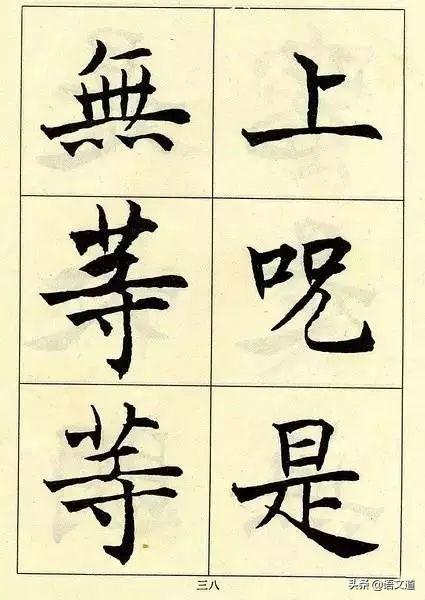 上呪是
無等等
三八
头条 @语文道